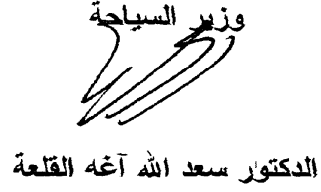 وزير السياحة
الدكتور سعد الله آغه القلعة